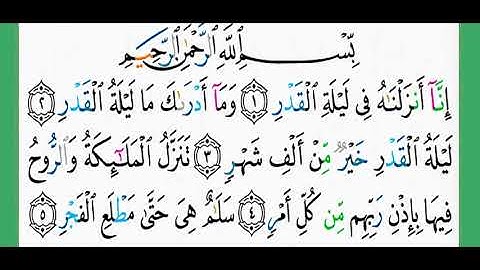 بِسْمِ اللَّهِ الرَّحْمَٰنِ الرَّحِيمِ
إِنَّآ أَنزَلْنَٰهُ فِى لَيْلَةِ الْقَدْرِ ١ وَمَآ أَدْرَىٰكَ مَا لَيْلَةُ الْقَدْرِ ٢
لَيْلَةُ الْقَدْرِ خَيْرٌ مِّنْ أَلْفِ شَهْرٍ ٣ تَنَزَّلُ الْمَلَٰٓئِكَةُ وَالرُّوحُ
فِيهَا بِإِذْنِ رَبِّهِم مِّن كُلِّ أَمْرٍ ٤ سَلَٰمٌ هِىَ حَتَّىٰ مَطْلَعِ الْفَجْرِ ٥